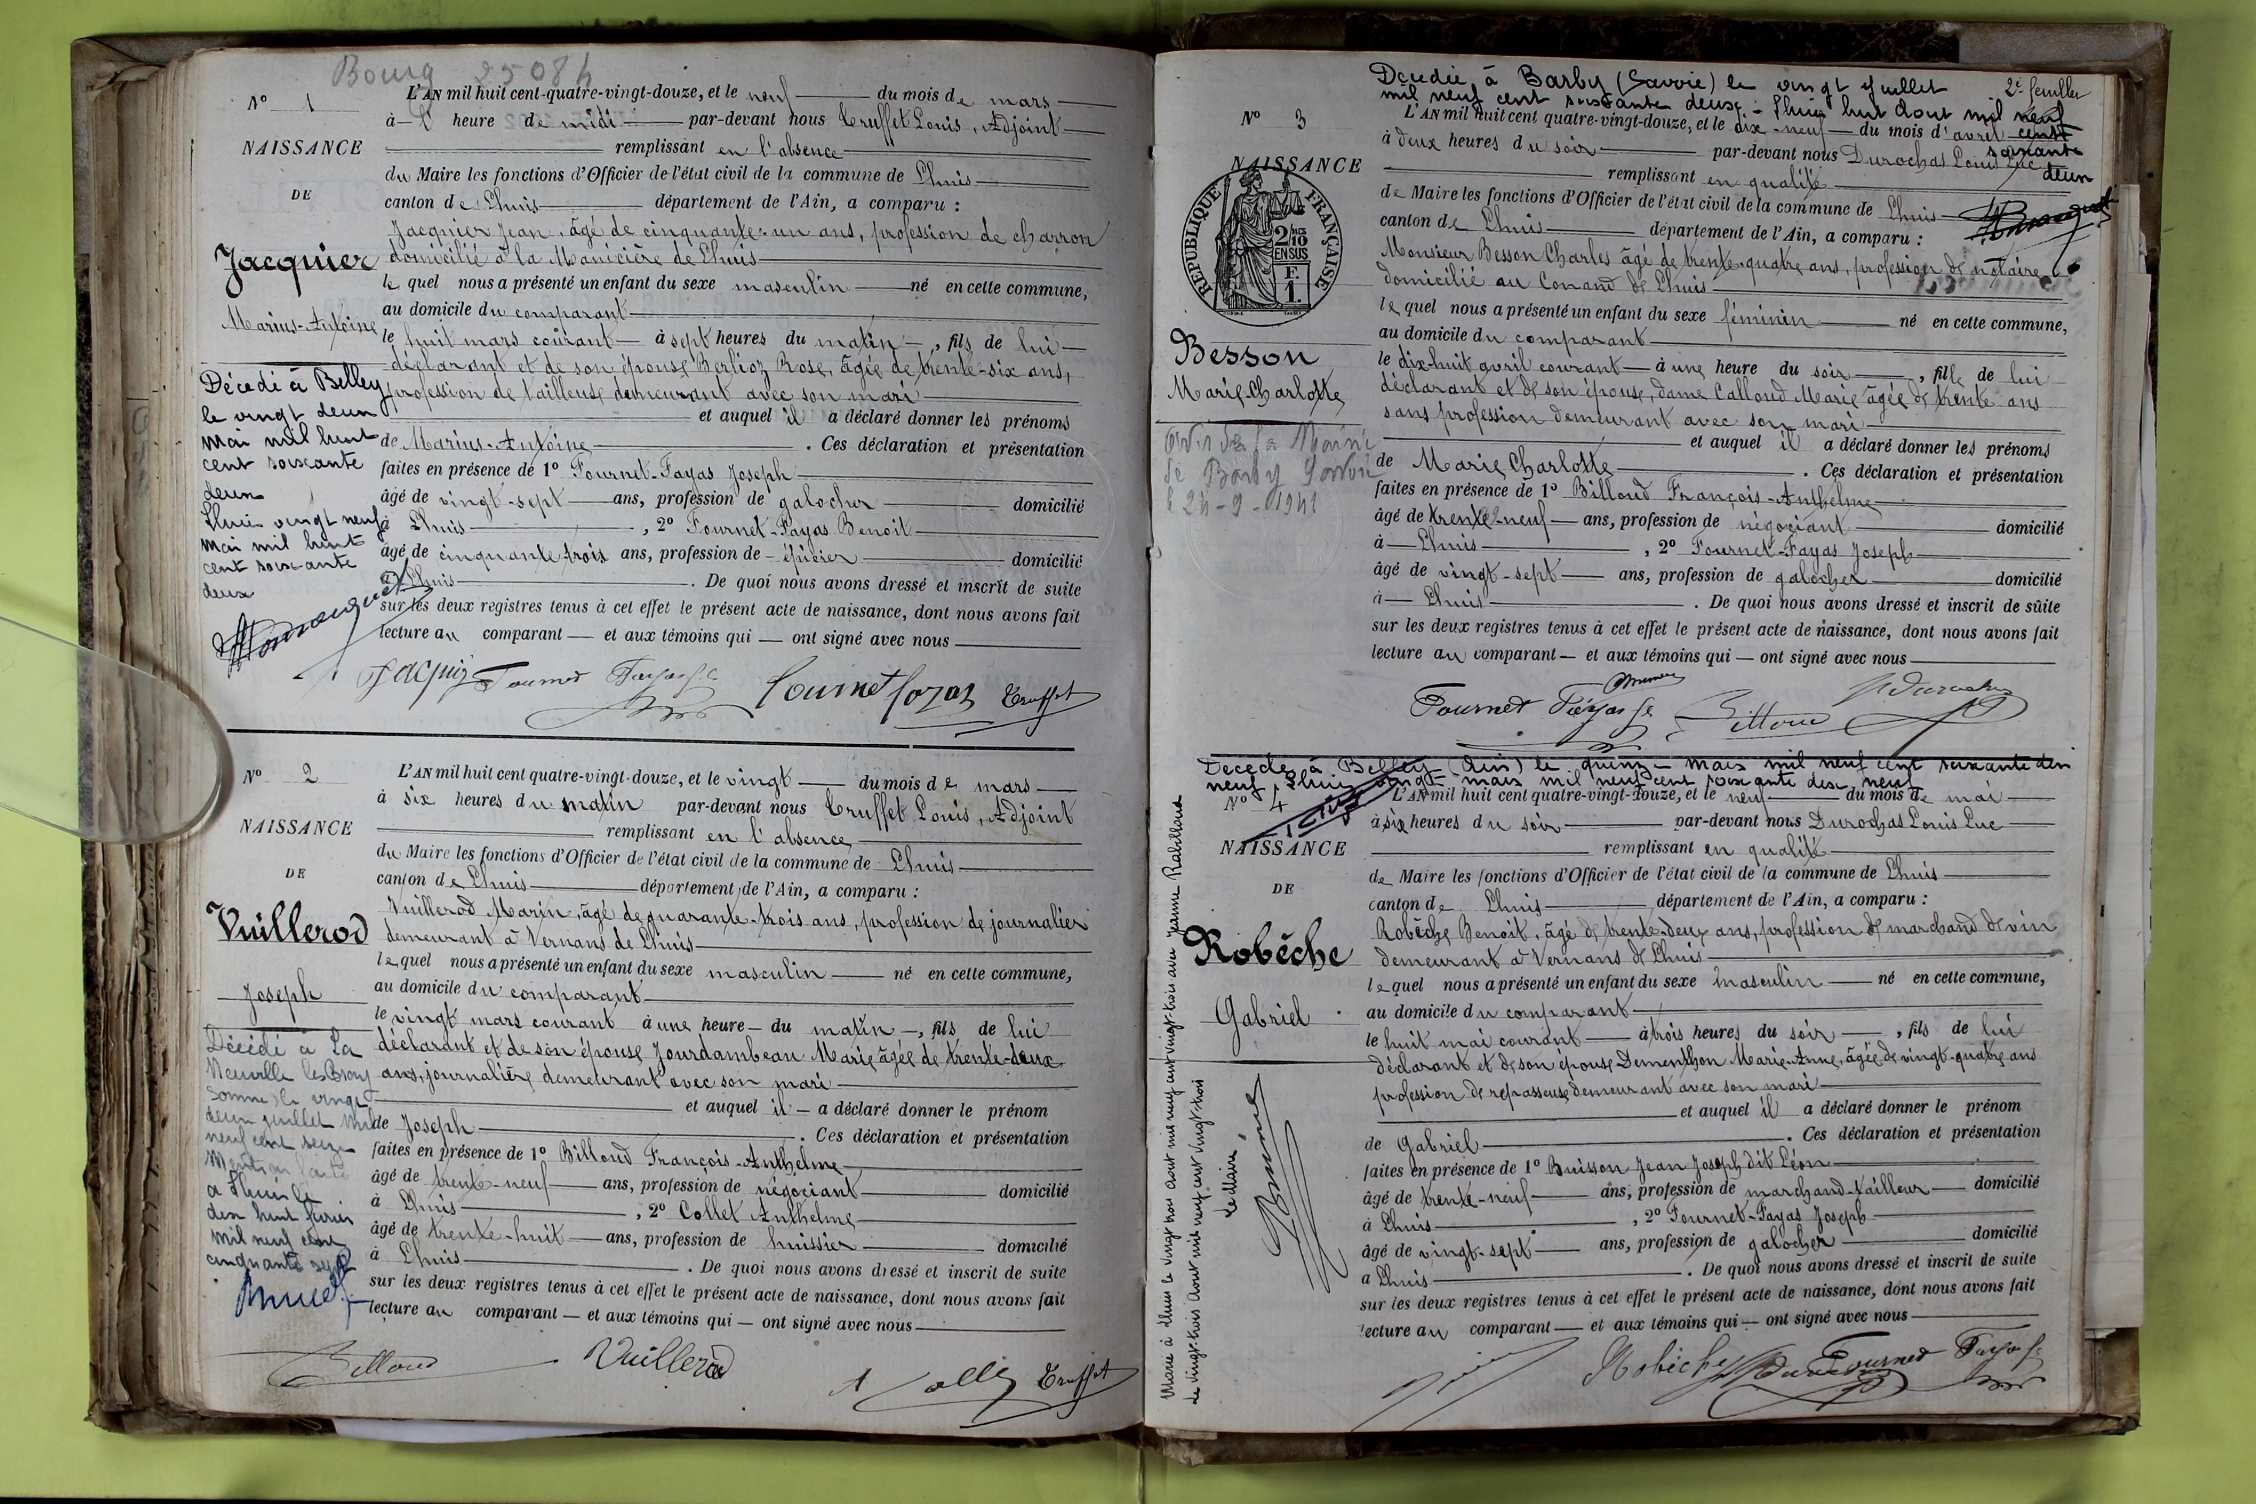 Bourg 2508h
N° 1
NAISSANCE
DE
Jacquier
Marius-Antoine
Décédé à Belley
le vingt deux
Mai mil huit
cent soixante
deux
Lhuis vingt neuf
Mai mil huit
cent soixante
deux
L'AN mil huit cent-quatre-vingt-douze, et le neuf du mois de mars
à l' heure de midi par-devant nous Truffet Louis, Adjoint
remplissant en l'absence
du Maire les fonctions d'Officier de l'état civil de la commune de Lhuis
canton de Lhuis département de l'Ain, a comparu :
Jacquier Jean, âgé de cinquante-un ans, profession de charron
domicilié à la Manicière de Lhuis
le quel nous a présenté un enfant du sexe masculin né en cette commune,
au domicile du comparant
le huit mars courant à sept heures du matin, fils de lui
déclarant et de son épouse Berlioz Rose, âgée de trente-six ans,
profession de tailleuse demeurant avec son mari
et auquel il a déclaré donner les prénoms
de Marius-Antoine. Ces déclaration et présentation
faites en présence de 1° Fournet-Fayas Joseph
âgé de vingt-sept ans, profession de galocher domicilié
à Lhuis, 2° Fournet-Fayas Benoit
âgé de cinquante-trois ans, profession de épicier domicilié
à Lhuis. De quoi nous avons dressé et inscrit de suite
sur les deux registres tenus à cet effet le présent acte de naissance, dont nous avons fait
lecture au comparant — et aux témoins qui — ont signé avec nous
Jacquier Fournet Fayas Je Fournet fayas Truffet
N° 2
NAISSANCE
DE
Vuillerod
Joseph
Décédé à La
Neuville les Bray
Somme) le vingt
deux juillet mil
neuf cent seize
Mention portée
à Lhuis le
dix huit février
mil neuf cent
cinquante sept
L'AN mil huit cent quatre-vingt-douze, et le vingt du mois de mars
à six heures du matin par-devant nous Truffet Louis, Adjoint
remplissant en l'absence
du Maire les fonctions d'Officier de l'état civil de la commune de Lhuis
canton de Lhuis département de l'Ain, a comparu :
Vuillerod Marin, âgé de quarante-trois ans, profession de journalier
demeurant à Vernans de Lhuis
le quel nous a présenté un enfant du sexe masculin né en cette commune,
au domicile du comparant
le vingt mars courant à une heure du matin, fils de lui
déclarant et de son épouse Jourdambeau Marie âgée de trente-deux
ans, journalière demeurant avec son mari
et auquel il a déclaré donner le prénom
de Joseph. Ces déclaration et présentation
faites en présence de 1° Billoud François-Anthelme
âgé de trente-neuf ans, profession de négociant domicilié
à Lhuis, 2° Collet Anthelme
âgé de trente-huit ans, profession de huissier domicilié
à Lhuis. De quoi nous avons dressé et inscrit de suite
sur les deux registres tenus à cet effet le présent acte de naissance, dont nous avons fait
lecture au comparant — et aux témoins qui — ont signé avec nous
Billoud Vuillerod A Collet Truffet
Décédée à Barby (Savoie) le vingt juillet
mil neuf cent soixante deux. Lhuis huit dout mil neuf
cent
soixante
deux
2e feuillet
N° 3
NAISSANCE
RÉPUBLIQUE FRANÇAISE
2/10 EN SUS
F. 1.
Besson
Marie-Charlotte
avis de la Mairie
de Barby Savoie
le 24-9-1941
L'AN mil huit cent quatre-vingt-douze, et le dix-neuf du mois d'avril
à deux heures du soir par-devant nous Durochat Louis Luc
remplissant en qualité
de Maire les fonctions d'Officier de l'état civil de la commune de Lhuis
canton de Lhuis département de l'Ain, a comparu :
Monsieur Besson Charles âgé de trente-quatre ans, profession de notaire
domicilié au Conand de Lhuis
le quel nous a présenté un enfant du sexe féminin né en cette commune,
au domicile du comparant
le dix-huit avril courant à une heure du soir, fille de lui
déclarant et de son épouse, dame Calloud Marie âgée de trente ans
sans profession demeurant avec son mari
et auquel il a déclaré donner les prénoms
de Marie Charlotte. Ces déclaration et présentation
faites en présence de 1° Billoud François-Anthelme
âgé de trente-neuf ans, profession de négociant domicilié
à Lhuis, 2° Fournet-Fayas Joseph
âgé de vingt-sept ans, profession de galocher domicilié
à Lhuis. De quoi nous avons dressé et inscrit de suite
sur les deux registres tenus à cet effet le présent acte de naissance, dont nous avons fait
lecture au comparant — et aux témoins qui — ont signé avec nous
Fournet Fayas Je Billoud Durochat
Décédé à Belley (Ain) le quinze mars mil neuf cent soixante dix
neuf. Lhuis vingt mars mil neuf cent soixante dix neuf
N° 4
NAISSANCE
DE
Robêche
Gabriel
Marié à Lhuis le vingt trois août mil neuf cent vingt-trois avec Jeanne Rabilloud
Le vingt-trois août mil neuf cent vingt-trois
Le Maire
L'AN mil huit cent quatre-vingt-douze, et le neuf du mois de mai
à six heures du soir par-devant nous Durochat Louis Luc
remplissant en qualité
de Maire les fonctions d'Officier de l'état civil de la commune de Lhuis
canton de Lhuis département de l'Ain, a comparu :
Robêche Benoit, âgé de trente-deux ans, profession de marchand de vin
demeurant à Vernans de Lhuis
le quel nous a présenté un enfant du sexe masculin né en cette commune,
au domicile du comparant
le huit mai courant à trois heures du soir, fils de lui
déclarant et de son épouse Dementhon Marie-Anne, âgée de vingt-quatre ans
profession de repasseuse demeurant avec son mari
et auquel il a déclaré donner le prénom
de Gabriel. Ces déclaration et présentation
faites en présence de 1° Buisson Jean Joseph dit Léon
âgé de trente-neuf ans, profession de marchand-tailleur domicilié
à Lhuis, 2° Fournet-Fayas Joseph
âgé de vingt-sept ans, profession de galocher domicilié
à Lhuis. De quoi nous avons dressé et inscrit de suite
sur les deux registres tenus à cet effet le présent acte de naissance, dont nous avons fait
lecture au comparant — et aux témoins qui — ont signé avec nous
Robêche Durochat Fournet Fayas Je